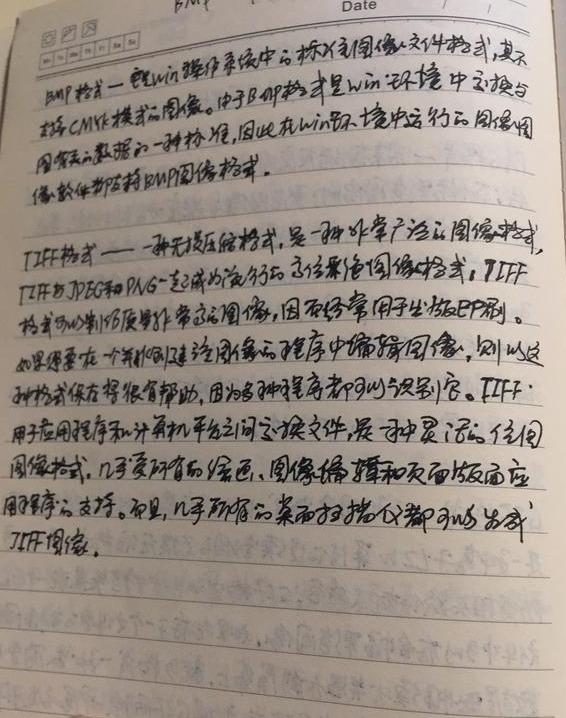 BMP
Date
Mo Tu We Th Fr Sa Su
BMP格式——是win操作系统中的标准图像文件格式,其不
支持CMYK模式的图像。由于BMP格式是win环境中交换与
图有关的数据的一种标准,因此在win环境中运行的图像图
像软件都支持BMP图像格式。
TIFF格式——一种无损压缩格式,是一种非常广泛的图像格式,
TIFF与JPEG和PNG一起成为流行的高位彩色图像格式。TIFF
格式可以制作质量非常高的图像,因而经常用于出版印刷。
如果想要在一个并非创建该图像的程序中编辑图像,则以这
种格式保存将很有帮助,因为多种程序都可以识别它。TIFF
用于应用程序和计算机平台之间交换文件,是一种灵活的位图
图像格式,几乎受所有的绘画、图像编辑和页面版面应
用程序的支持。而且,几乎所有的桌面扫描仪都可以生成
TIFF图像。